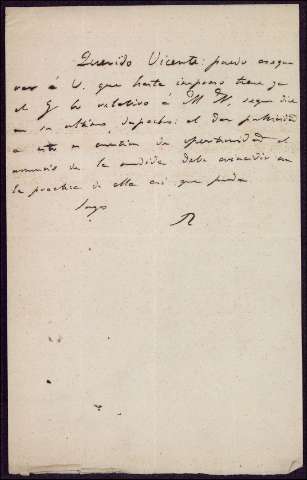 Querido Vicente: puedo asegu
rar á V. que hasta impreso tiene ya
el G lo relativo á M N, segun dice
en su ultimo despacho: el dar publicidad
a esto es cuestion de oportunidad el
anuncio de la medida debe coincidir con
la practica de ella asi que pueda
Suyo
R